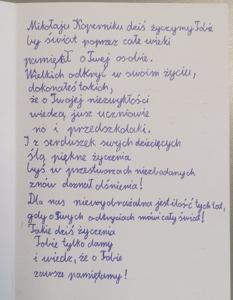 Mikołaju Koperniku dziś życzymy Tobie
by świat poprzez całe wieki
pamiętał o Twej osobie.
Wielkich odkryć w swoim życiu,
dokonałeś takich,
że o Twojej niezwykłości
wiedzą już uczniowie
no i przedszkolaki.
I z serduszek swych dziecięcych
ślą piękne życzenia
byś w przestworzach niezbadanych
znów doznał olśnienia!
Dla nas niewyobrażalna jest ilość tych lat,
gdy o Twych odkryciach mówi cały świat!
Takie dziś życzenia
Tobie tylko damy
i wiedz, że o Tobie
zawsze pamiętamy!